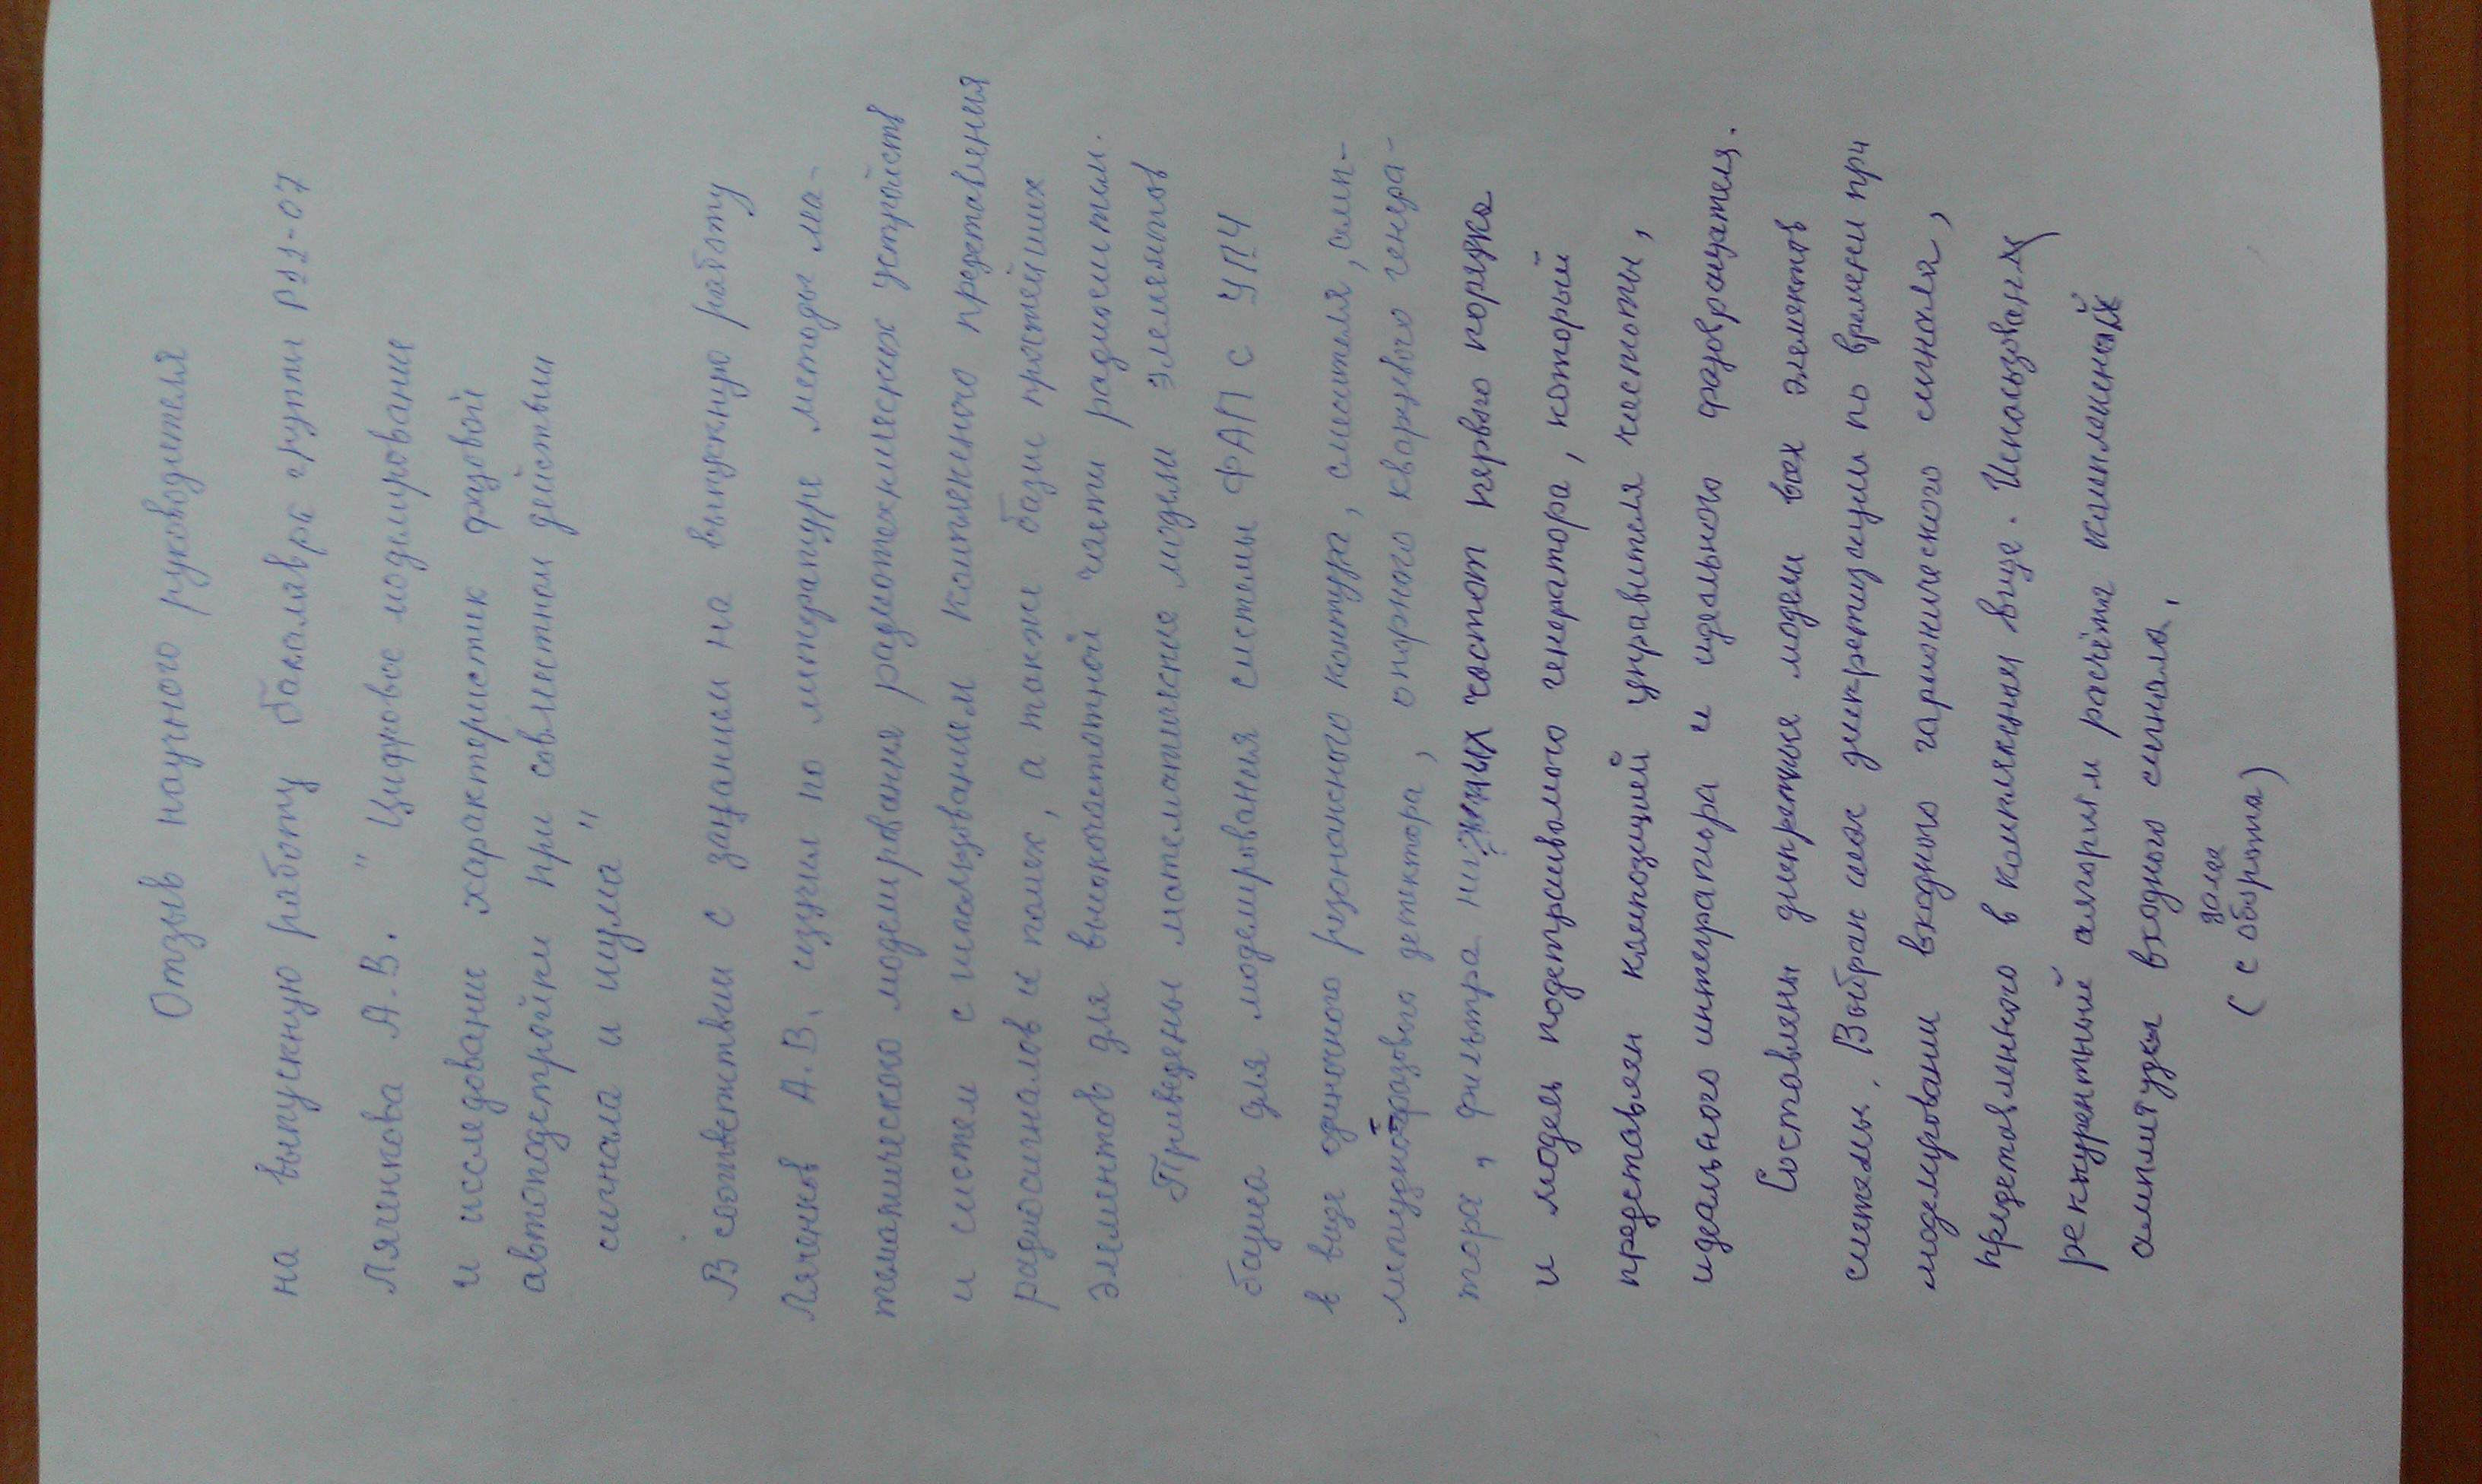 Отзыв научного руководителя
на выпускную работу бакалавра группы Р11-07
Ляченкова А.В. "Цифровое моделирование
и исследование характеристик фазовой
автоподстройки при совместном действии
сигнала и шума"
В соответствии с заданием на выпускную работу
Ляченков А.В. изучил по литературе методы ма-
тематического моделирования радиотехнических устройств
и систем с использованием комплексного представления
радиосигналов и помех, а также базы простейших
элементов для высокочастотной части радиосистем.
Приведены математические модели элементов
базиса для моделирования системы ФАП с УПЧ
в виде одиночного резонансного контура, смесителя, амп-
литуднофазового детектора, опорного кварцевого генера-
тора, фильтра нижних частот первого порядка
и модель подстраиваемого генератора, который
представлен композицией управителя частоты,
идеального интегратора и идеального фазовращателя.
Составлены дискретные модели всех элементов
системы. Выбран шаг дискретизации по времени при
моделировании входного гармонического сигнала,
представленного в комплексном виде. Использован
рекуррентный алгоритм расчёта комплексной
амплитуды входного сигнала.
(с оборота)